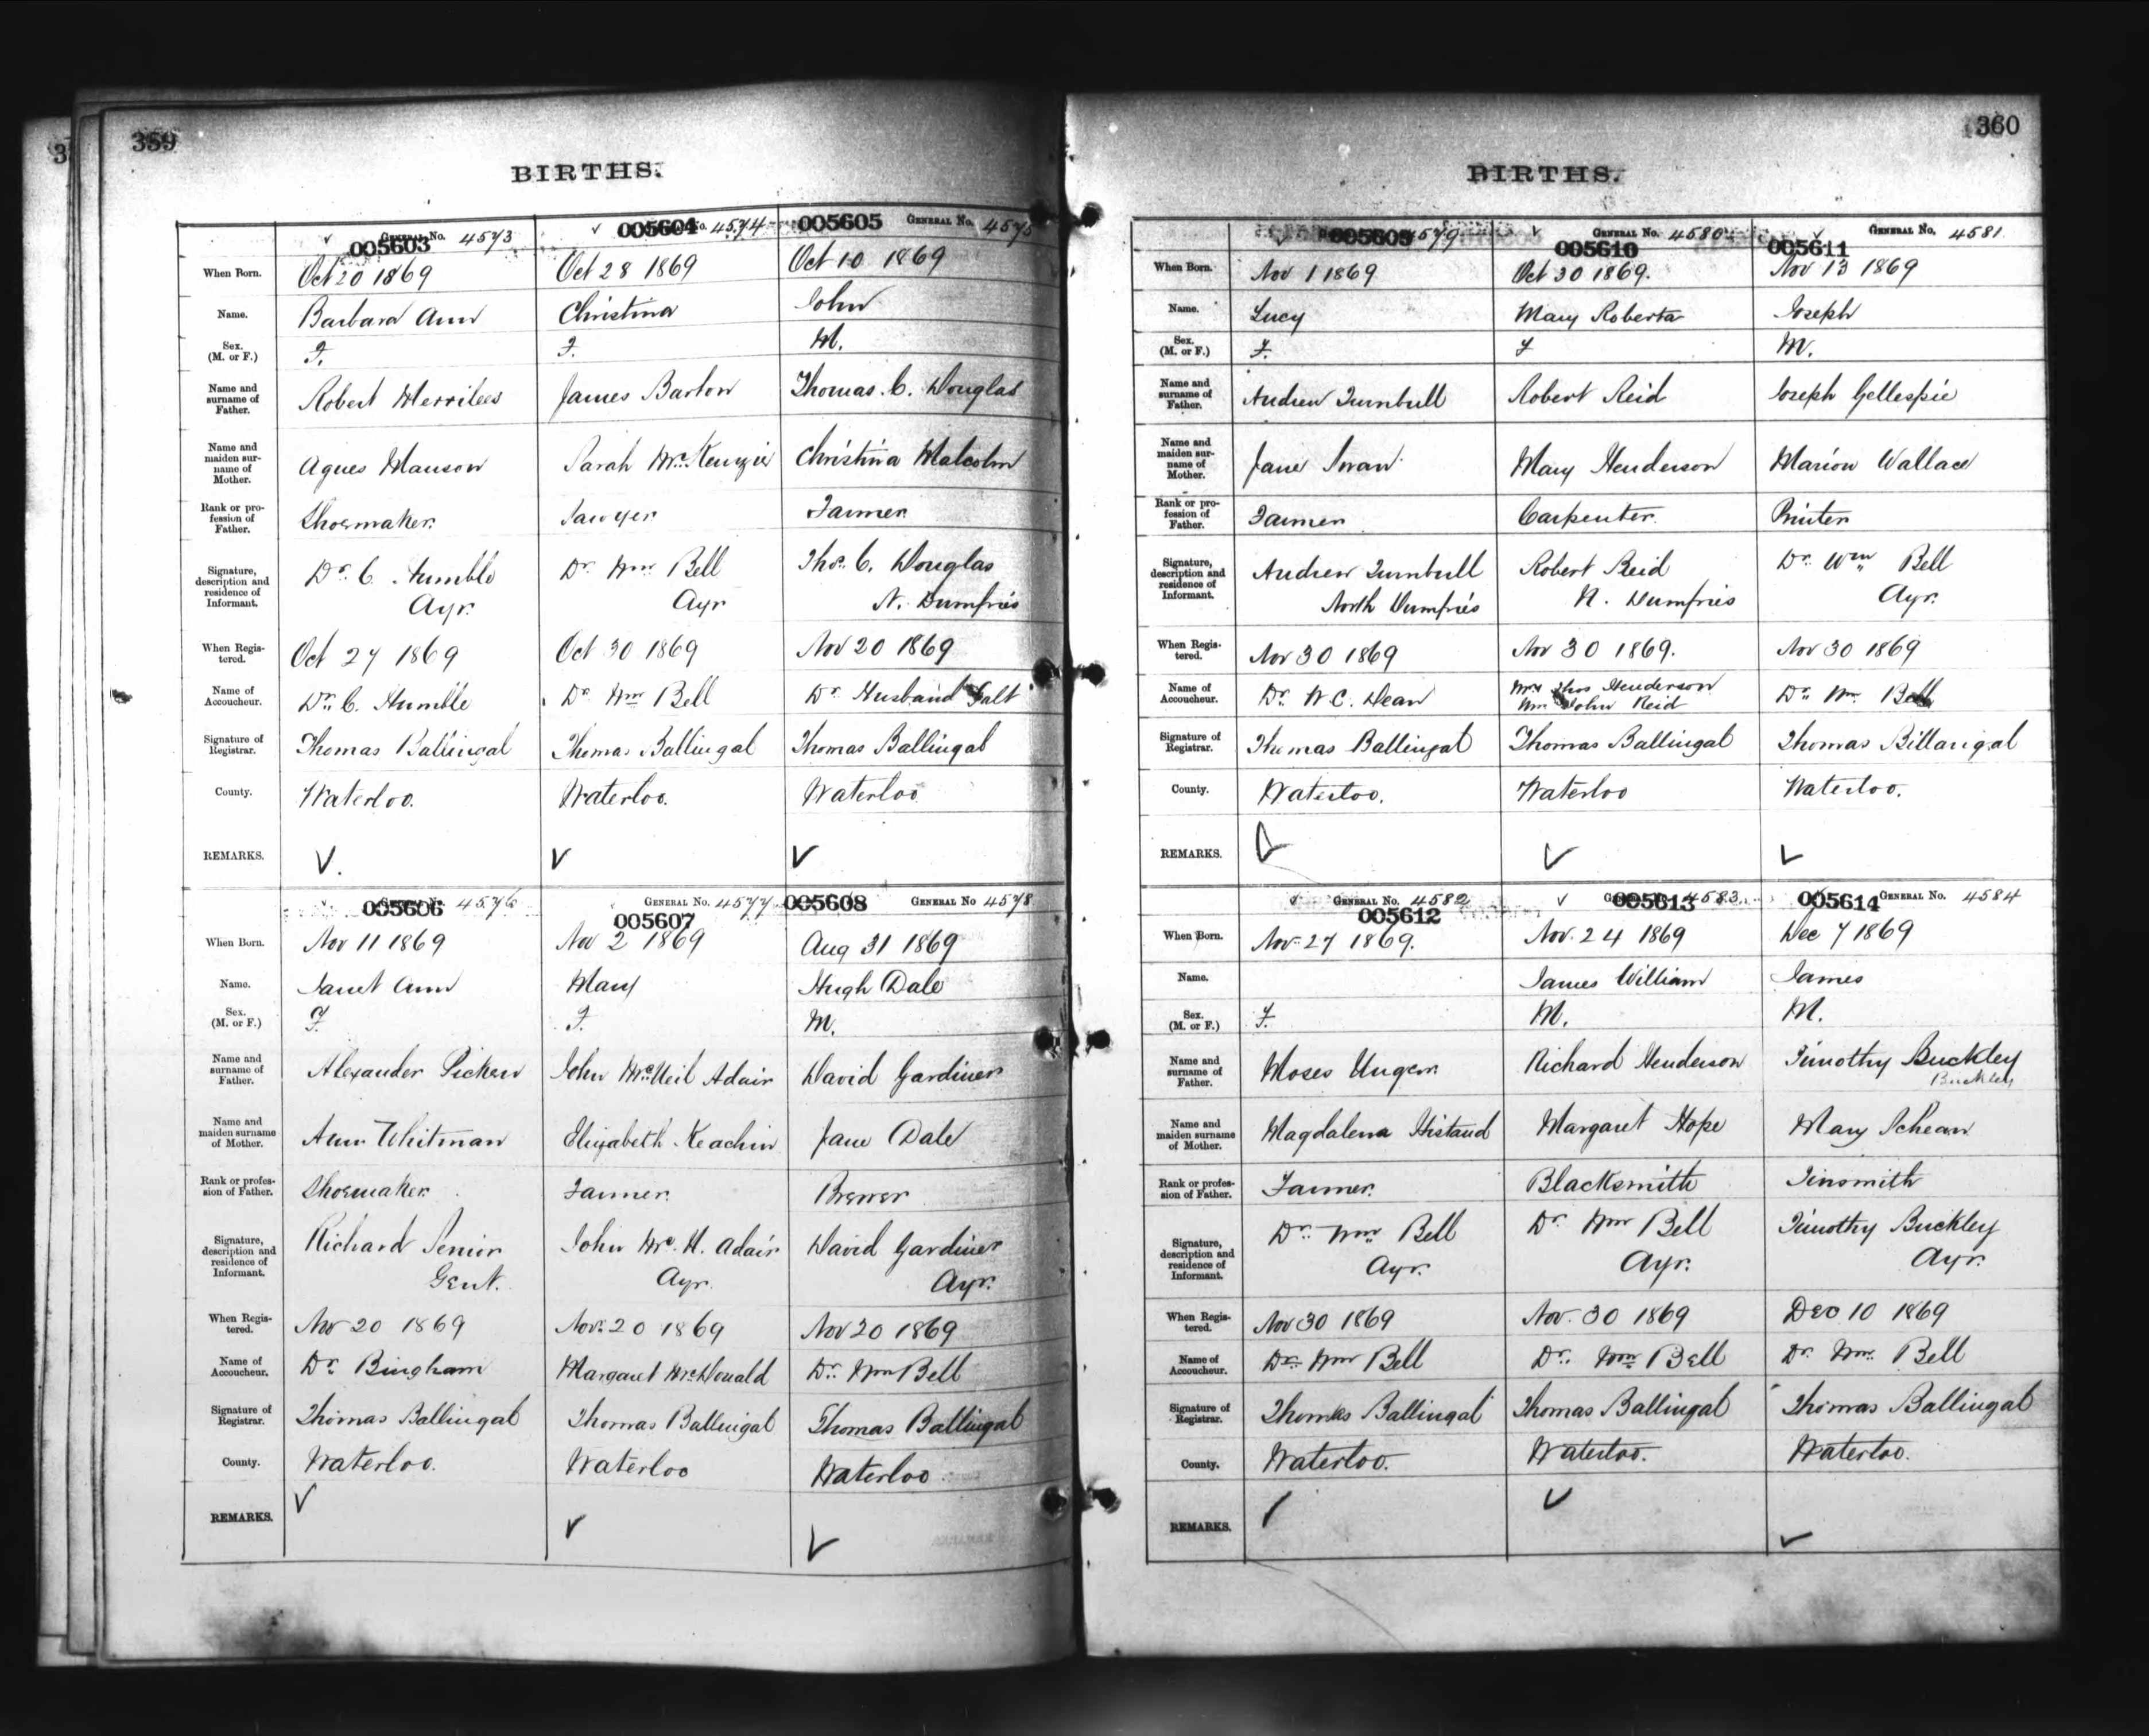 359
BIRTHS.
005603 GENERAL No. 4573 005604 No. 4574 005605 GENERAL No. 4575
When Born. Oct 20 1869 Oct 28 1869 Oct 10 1869
Name. Barbara Ann Christina John
Sex. (M. or F.) F. F. M.
Name and surname of Father. Robert Merrilees James Barton Thomas C. Douglas
Name and maiden surname of Mother. Agnes Manson Sarah McKenzie Christina Malcolm
Rank or profession of Father. Shoemaker. Sawyer Farmer
Signature, description and residence of Informant. Dr. C. Humble Dr Wm Bell Thos. C. Douglas
Ayr. Ayr N. Dumfries
When Registered. Oct 27 1869 Oct 30 1869 Nov 20 1869
Name of Accoucheur. Dr. C. Humble Dr Wm Bell Dr Husband Galt
Signature of Registrar. Thomas Ballingal Thomas Ballingal Thomas Ballingal
County. Waterloo. Waterloo. Waterloo
REMARKS.
005606 4576 GENERAL No. 4577 005607 005608 GENERAL No 4578
When Born. Nov 11 1869 Nov 2 1869 Aug 31 1869
Name. Janet Ann Mary Hugh Dale
Sex. (M. or F.) F. F. M.
Name and surname of Father. Alexander Picken John McNeil Adair David Gardiner
Name and maiden surname of Mother. Ann Whitman Elizabeth Keachin Jane Dale
Rank or profession of Father. Shoemaker. Farmer. Brewer
Signature, description and residence of Informant. Richard Senior John Mc N. Adair David Gardiner
Gent. Ayr Ayr.
When Registered. Nov 20 1869 Nov. 20 1869 Nov 20 1869
Name of Accoucheur. Dr Bingham Margaret McDonald Dr. Wm Bell
Signature of Registrar. Thomas Ballingal Thomas Ballingal Thomas Ballingal
County. Waterloo. Waterloo Waterloo
REMARKS.
360
BIRTHS.
005609 4579 GENERAL No. 4580 005610 005611 GENERAL No. 4581
When Born. Nov 1 1869 Oct 30 1869. Nov 13 1869
Name. Lucy Mary Roberta Joseph
Sex. (M. or F.) F. F M.
Name and surname of Father. Andrew Turnbull Robert Reid Joseph Gellespie
Name and maiden surname of Mother. Jane Swan Mary Henderson Marion Wallace
Rank or profession of Father. Farmer Carpenter. Printer
Signature, description and residence of Informant. Andrew Turnbull Robert Reid Dr. Wm Bell
North Dumfries N. Dumfries Ayr.
When Registered. Nov 30 1869 Nov 30 1869. Nov 30 1869
Name of Accoucheur. Dr. W C. Dean Mrs Thos Henderson Dr Wm. Bell
John Reid
Signature of Registrar. Thomas Ballingal Thomas Ballingal Thomas Billarigal
County. Waterloo. Waterloo Waterloo.
REMARKS.
GENERAL No. 4582 005612 005613 4583 005614 GENERAL No. 4584
When Born. Nov. 27 1869. Nov. 24 1869 Dec 7 1869
Name. James William James
Sex. (M. or F.) F. M. M.
Name and surname of Father. Moses Unger Richard Henderson Timothy Buckley
Buckley
Name and maiden surname of Mother. Magdalena Histand Margaret Hope Mary Schean
Rank or profession of Father. Farmer. Blacksmith Tinsmith
Signature, description and residence of Informant. Dr. Wm Bell Dr. Wm Bell Timothy Buckley
Ayr. Ayr. Ayr.
When Registered. Nov 30 1869 Nov. 30 1869 Dec 10 1869
Name of Accoucheur. Dr Wm Bell Dr. Wm Bell Dr. Wm. Bell
Signature of Registrar. Thomas Ballingal Thomas Ballingal Thomas Ballingal
County. Waterloo. Waterloo. Waterloo.
REMARKS.